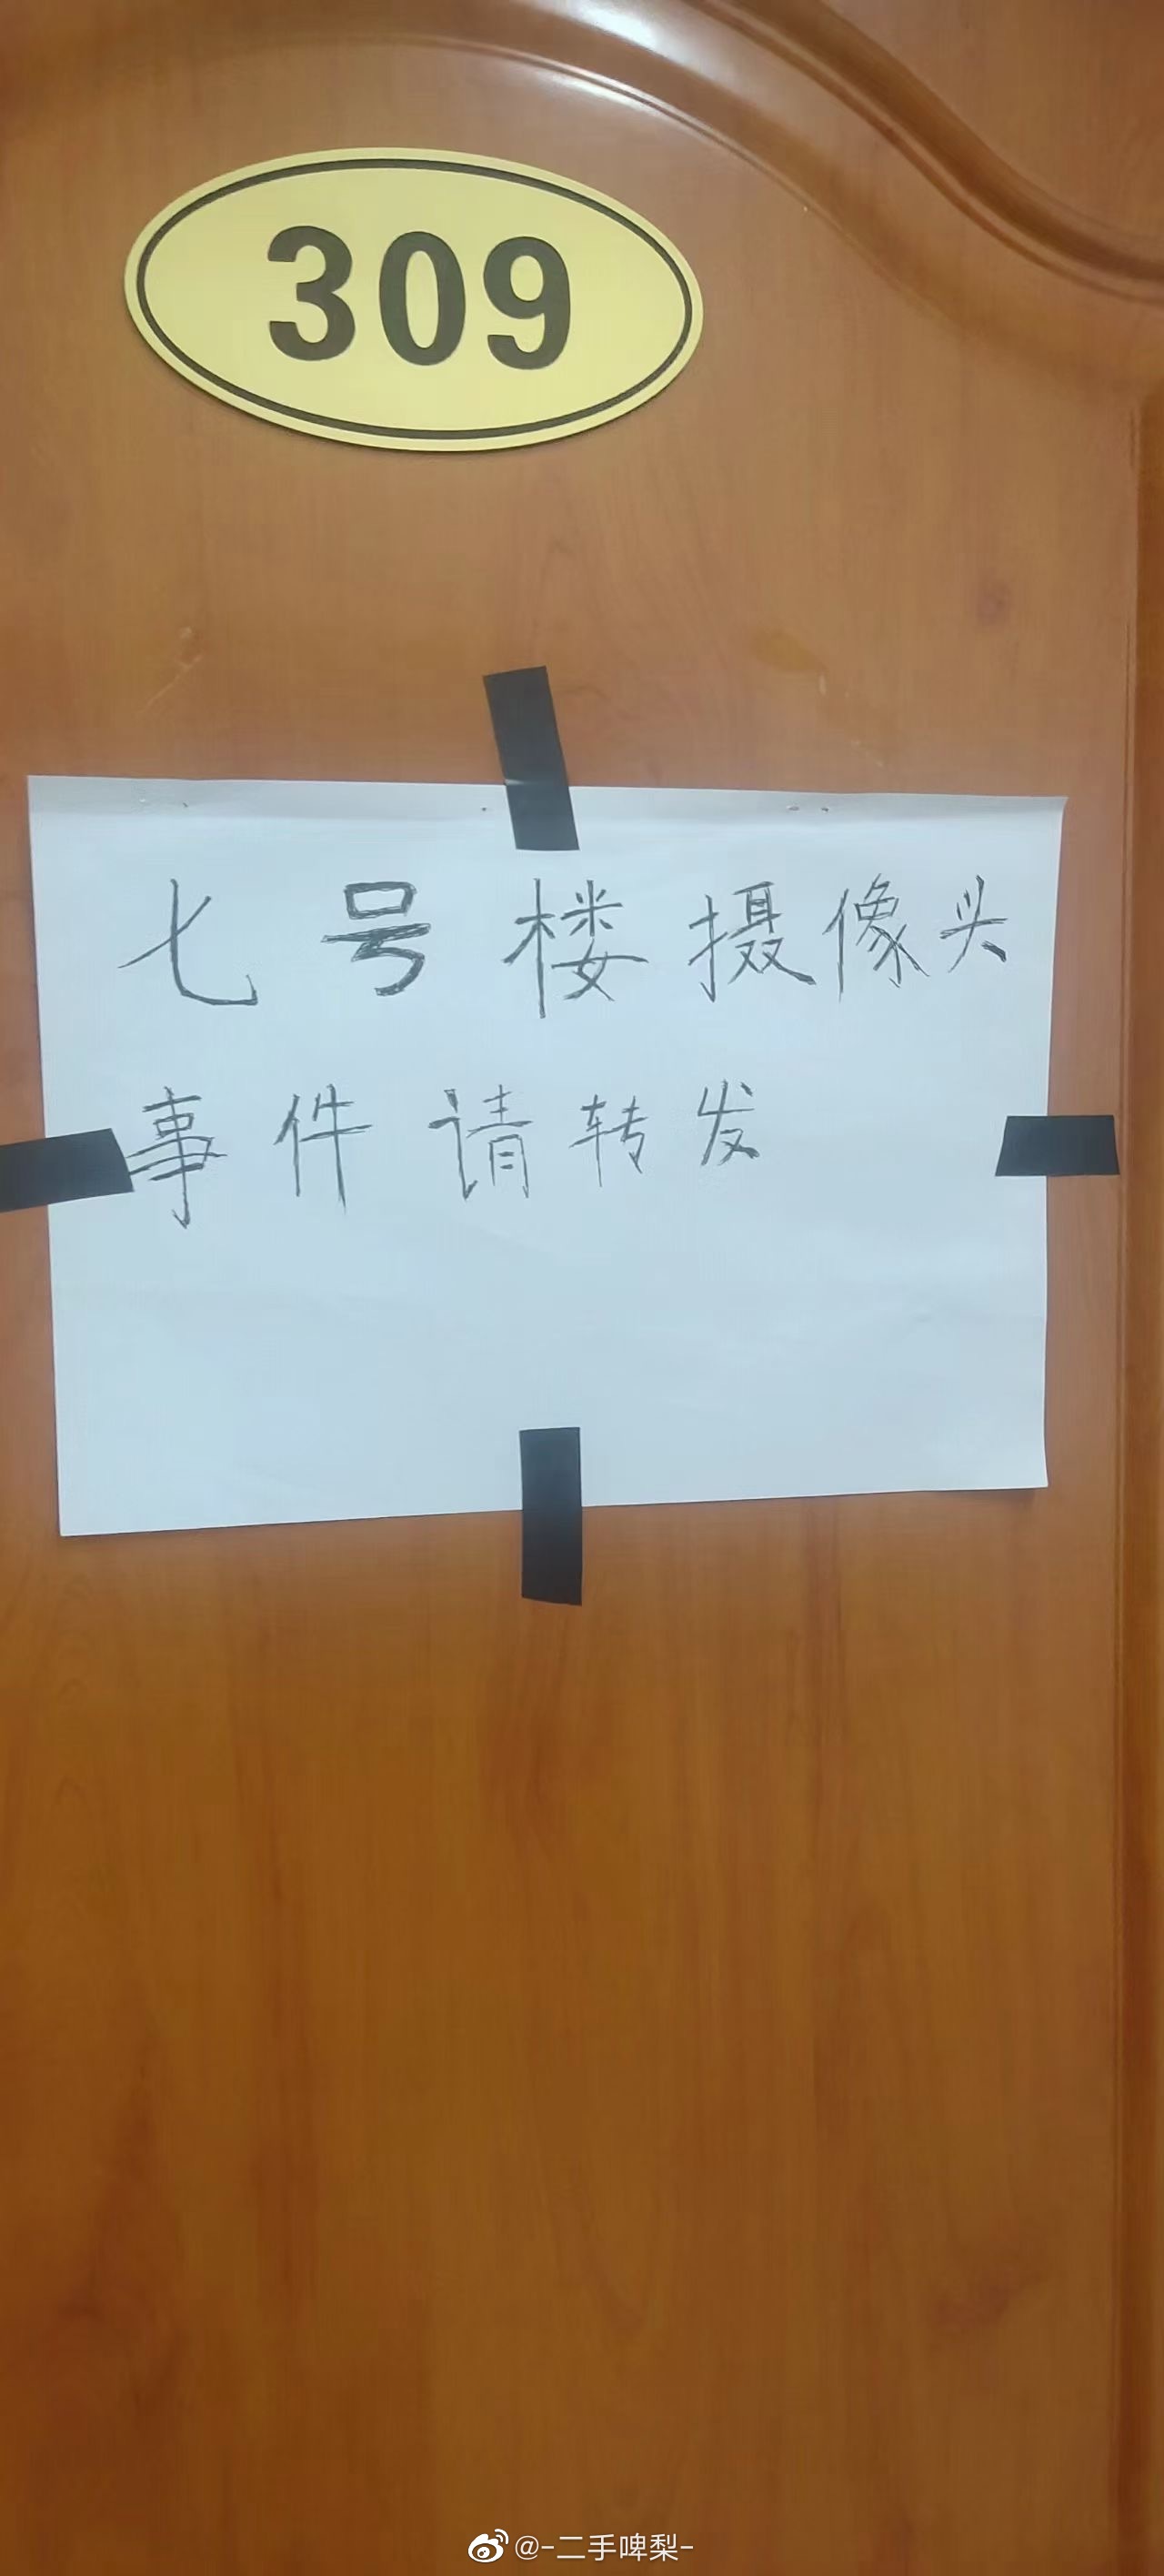 309
七号楼摄像头
事件请转发
@-二手啤梨-